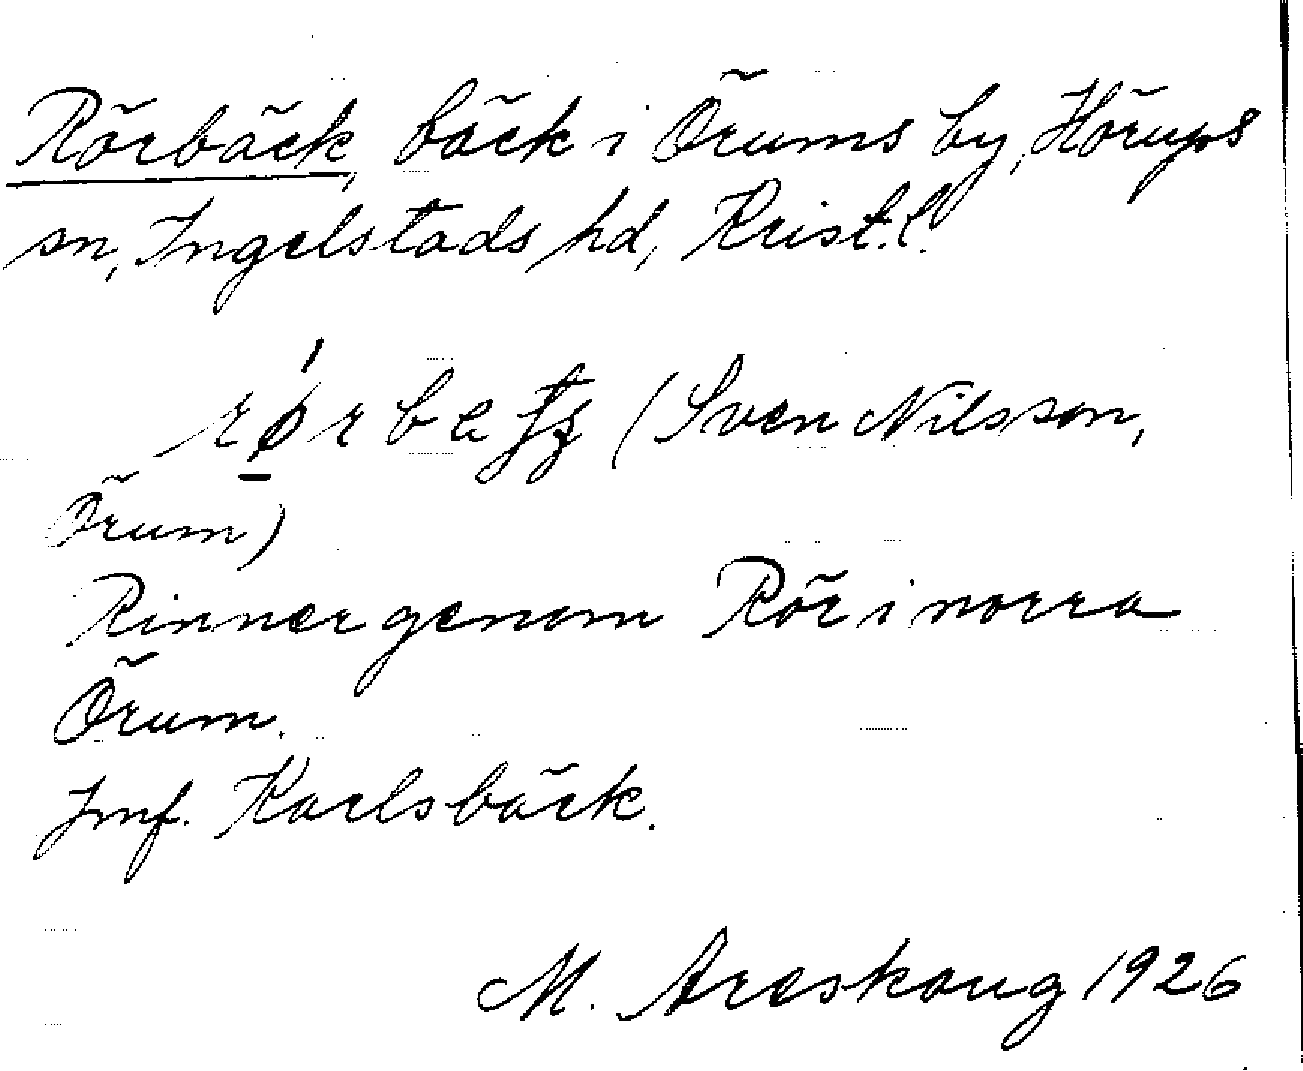 Rörbäck, bäck i Örums by, Hörups
sn, Ingelstads hd, Krist.l.
(Sven Nilsson,
Örum)
Rinner genom Rör i norra
Örum.
Jmf. Karlsbäck.
M. Areskoug 1926